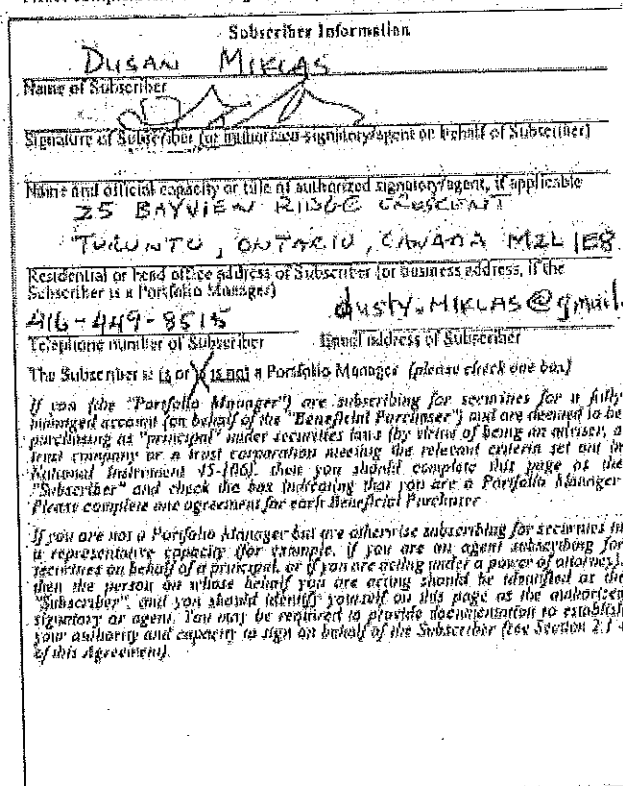 Subscriber Information
DUSAN MIKLAS
Name of Subscriber
Signature of Subscriber (or authorized signatory/agent on behalf of Subscriber)
Name and official capacity or title of authorized signatory/agent, if applicable
25 BAYVIEW RIDGE CRESCENT
TORONTO, ONTARIO, CANADA M2L 1E8
Residential or head office address of Subscriber (or business address, if the
Subscriber is a Portfolio Manager)
416-449-8515 dusty.MIKLAS@gmail.
Telephone number of Subscriber Email address of Subscriber
The Subscriber is is or X is not a Portfolio Manager (please check one box)
If you (the "Portfolio Manager") are subscribing for securities for a fully
managed account (on behalf of the "Beneficial Purchaser") and are deemed to be
purchasing as "principal" under securities laws (by virtue of being an adviser, a
trust company or a trust corporation meeting the relevant criteria set out in
National Instrument 45-106), then you should complete this page as the
"Subscriber" and check the box indicating that you are a Portfolio Manager
Please complete one agreement for each Beneficial Purchaser
If you are not a Portfolio Manager but are otherwise subscribing for securities in
a representative capacity (for example, if you are an agent subscribing for
securities on behalf of a principal, or if you are acting under a power of attorney),
then the person on whose behalf you are acting should be identified as the
"Subscriber", and you should identify yourself on this page as the authorized
signatory or agent. You may be required to provide documentation to establish
your authority and capacity to sign on behalf of the Subscriber (see Section 2.1
of this Agreement).